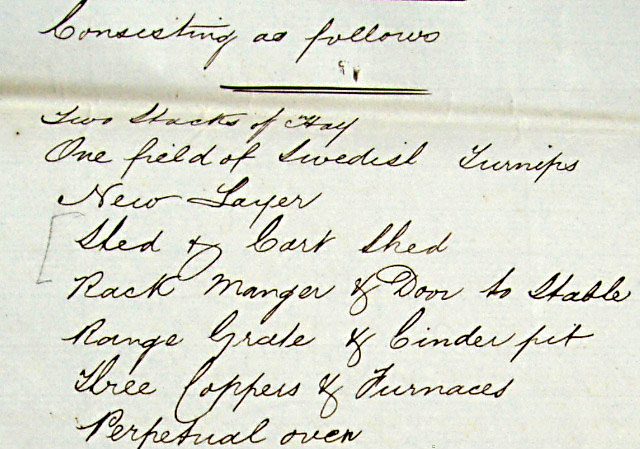 Consisting as follows
Two Stacks of Hay
One field of Swedish Turnips
New Layer
Shed & Cart Shed
Rack Manger & Door to Stable
Range Grate & Cinder pit
Three Coppers & Furnaces
Perpetual oven